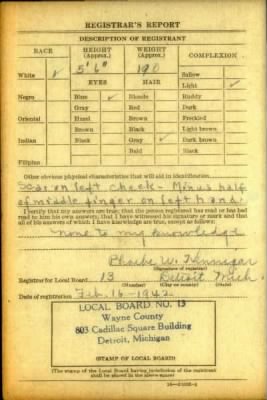 REGISTRAR'S REPORT
DESCRIPTION OF REGISTRANT
RACE HEIGHT (Approx.) WEIGHT (Approx.) COMPLEXION
5' 6" 190
White ✓ EYES HAIR Sallow
Light ✓
Negro Blue ✓ Blonde Ruddy
Gray Red Dark
Oriental Hazel Brown Freckled
Brown Black Light brown
Indian Black Gray ✓ Dark brown
Bald Black
Filipino
Other obvious physical characteristics that will aid in identification
Scar on left cheek - Minus half
of middle finger on left hand
I certify that my answers are true; that the person registered has read or has had
read to him his own answers; that I have witnessed his signature or mark and that
all of his answers of which I have knowledge are true, except as follows:
none to my knowledge
Phoebe W.
(Signature of registrar)
Registrar for Local Board 13 Detroit Mich.
(Number) (City or county) (State)
Date of registration Feb. 16 - 1942
LOCAL BOARD NO. 13
Wayne County
603 Cadillac Square Building
Detroit, Michigan
(STAMP OF LOCAL BOARD)
(The stamp of the Local Board having jurisdiction of the registrant
shall be placed in the above space.)